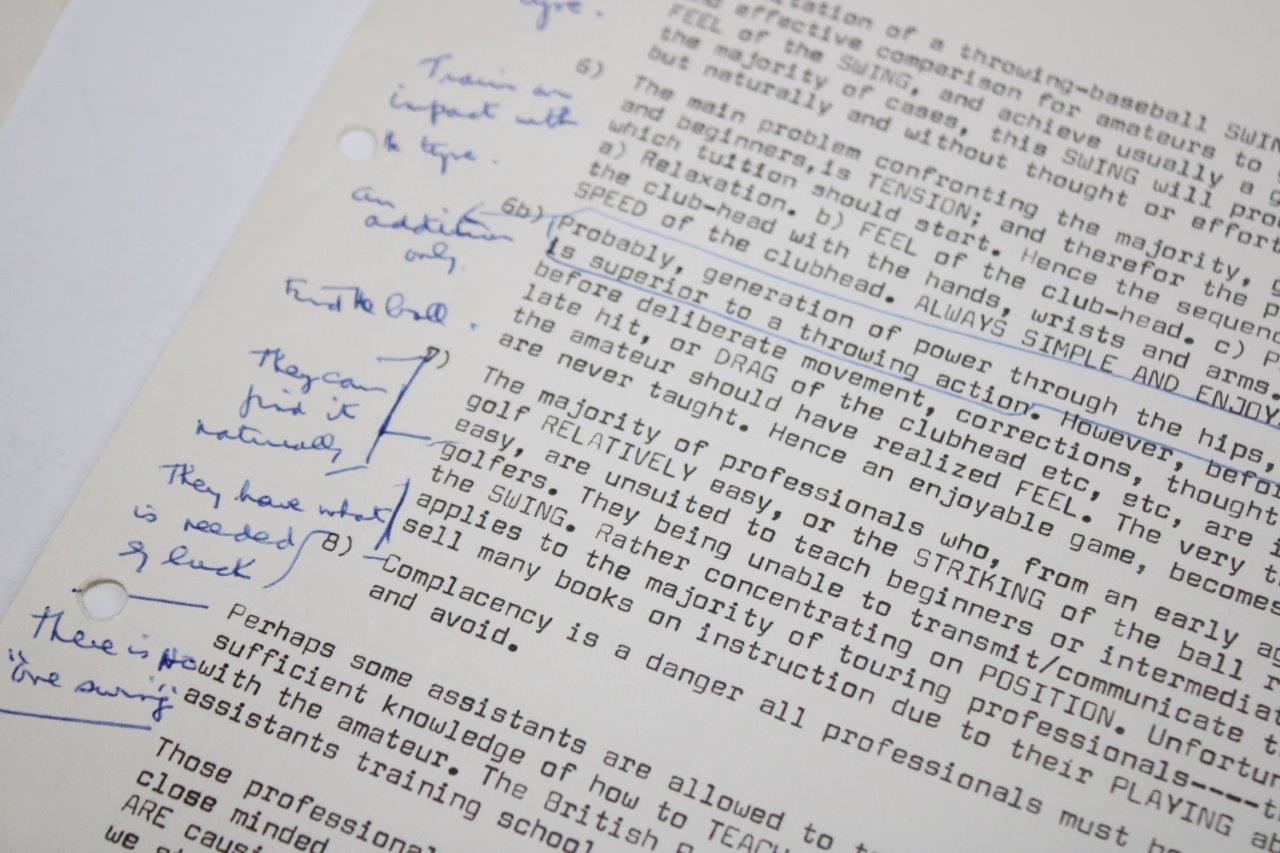 tyre.
Train an
impact with
tyre.
an
addition
only.
Find the ball.
They can
find it
naturally
They have what
is needed
luck
There is no
"one swing"
of a throwing-baseball SWIN
effective comparison for amateurs to
FEEL of the SWING, and achieve usually a
the majority of cases, this SWING will pro
but naturally and without thought or effort
6) The main problem confronting the majority,
and beginners,is TENSION; and therefor the p
which tuition should start. Hence the sequenc
a) Relaxation. b) FEEL of the club-head. c)
the club-head with the hands, wrists and arms.
SPEED of the clubhead. ALWAYS SIMPLE AND ENJOY
6b) Probably, generation of power through the hips,
is superior to a throwing action. However, befor
before deliberate movement, corrections, thought
late hit, or DRAG of the clubhead etc, etc, are i
the amateur should have realized FEEL. The very t
are never taught. Hence an enjoyable game, becomes
7) The majority of professionals who, from an early ag
golf RELATIVELY easy, or the STRIKING of the ball r
easy, are unsuited to teach beginners or intermediat
golfers. They being unable to transmit/communicate t
the SWING. Rather concentrating on POSITION. Unfortun
applies to the majority of touring professionals----th
sell many books on instruction due to their PLAYING ab
8) Complacency is a danger all professionals must be
and avoid.
Perhaps some assistants are allowed to
sufficient knowledge of how to TEACH
with the amateur. The British
assistants training school
Those professional
close minded
ARE caus
we